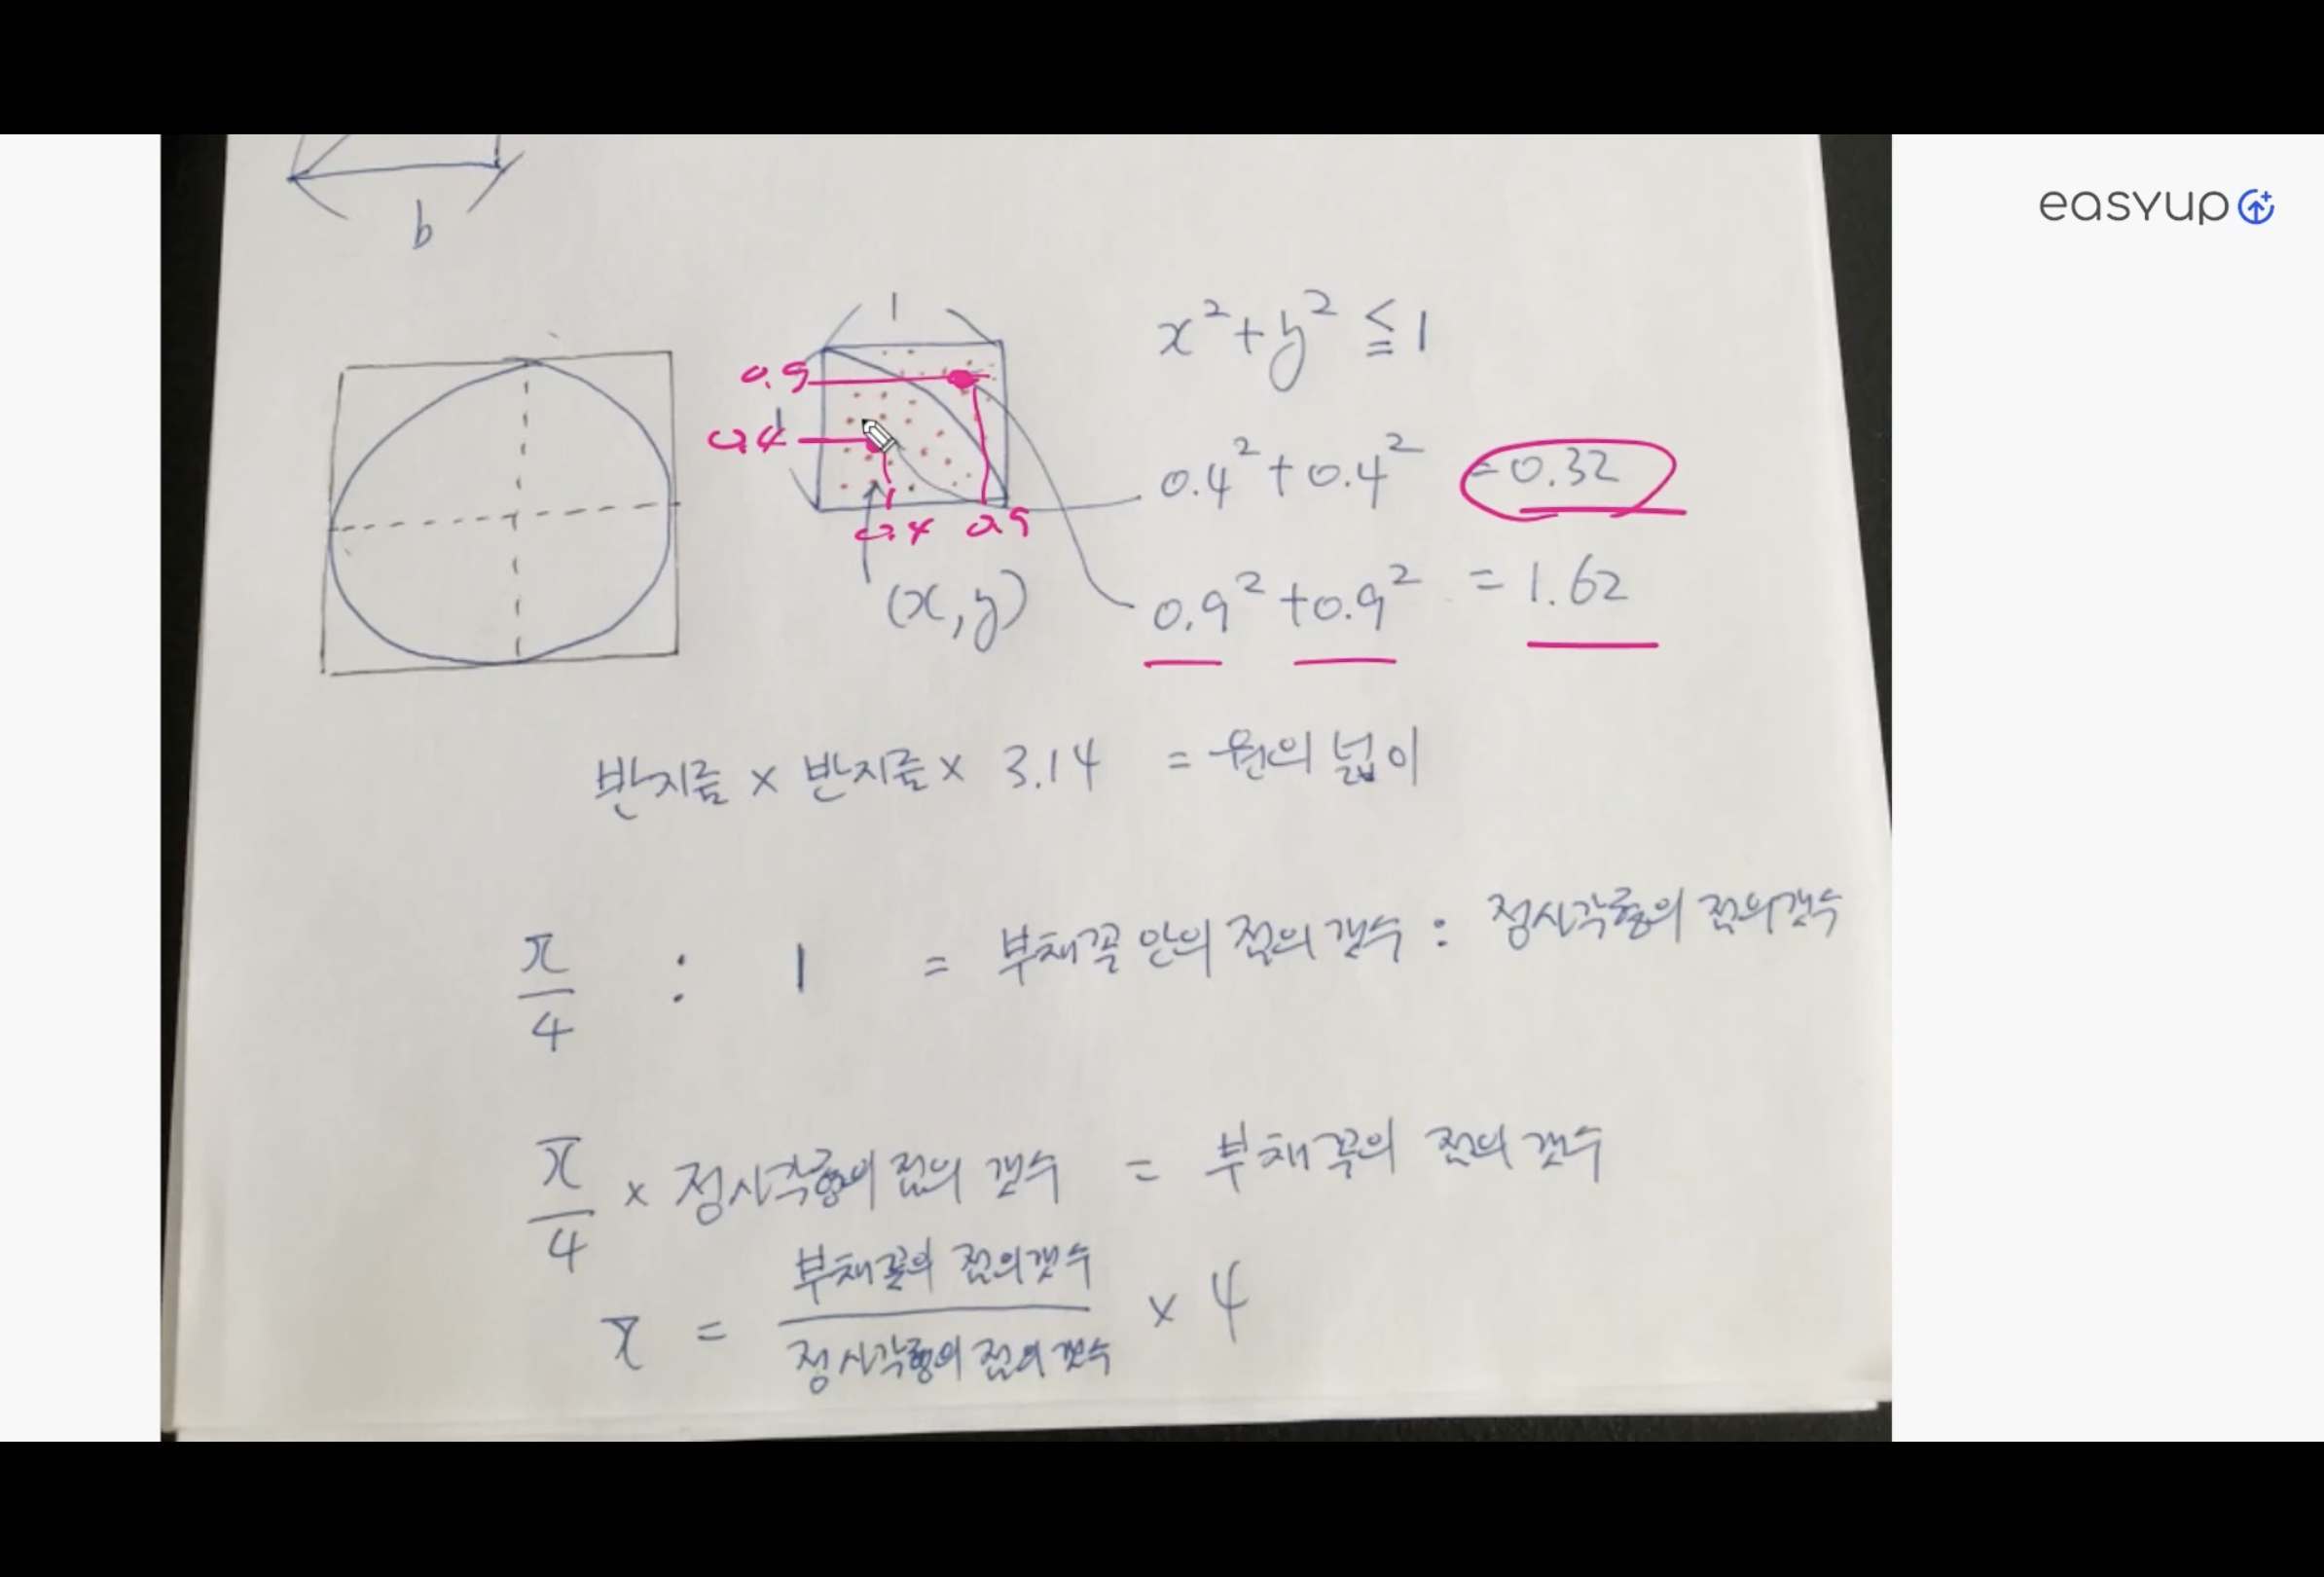 easyup
b
1
x² + y² ≦ 1
0.9
1
0.4
0.4² + 0.4² = 0.32
0.4 0.9
(x, y)
0.9² + 0.9² = 1.62
반지름 × 반지름 × 3.14 = 원의 넓이
π/4 : 1 = 부채꼴 안의 점의 갯수 : 정사각형의 점의 갯수
π/4 × 정사각형의 점의 갯수 = 부채꼴의 점의 갯수
π = 부채꼴의 점의 갯수 / 정사각형의 점의 갯수 × 4